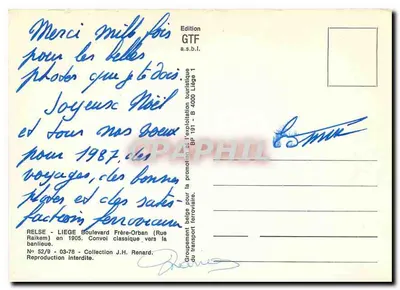 Merci mille fois
pour les belles
photos que je te dois.
Joyeux Noël
et tous nos voeux
pour 1987, des
voyages, des bonnes
photos et des satis-
factions ferroviaires
RELSE - LIEGE Boulevard Frère-Orban (Rue
Raikem) en 1905. Convoi classique vers la
banlieue.
N° 52/9 - 03-78 - Collection J.H. Renard.
Reproduction interdite.
Edition
GTF
a.s.b.l.
Groupement belge pour la promotion et l'exploitation touristique
du transport ferroviaire.
BP 191 - B 4000 Liège 1